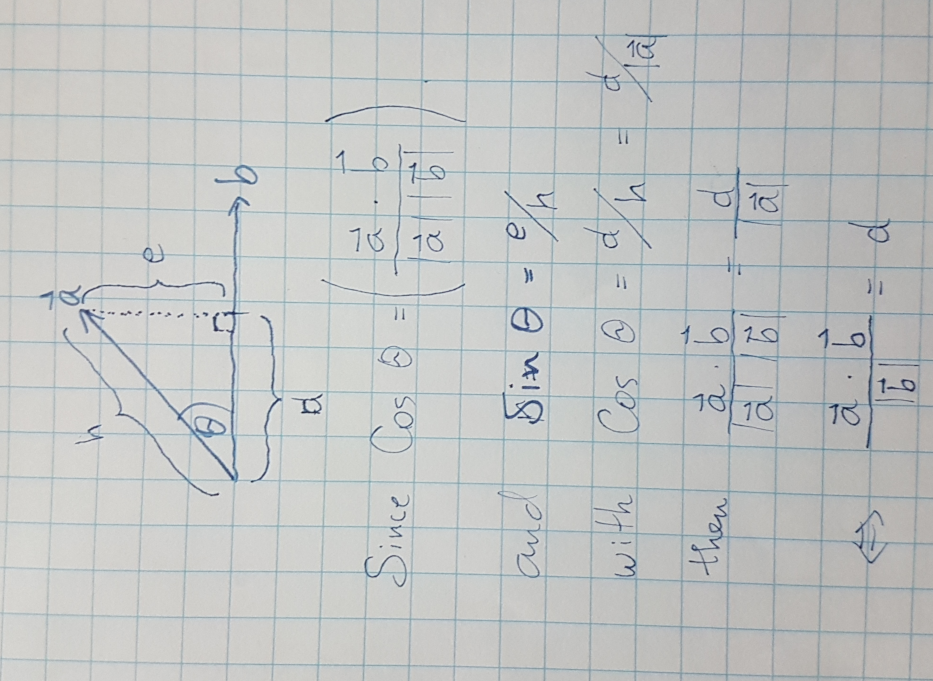 a⃗
h
e
θ
b
d
Since Cos θ = ( a⃗ · b⃗ / |a⃗| |b⃗| )
and Sin θ = e/h
with Cos θ = d/h = d/|a⃗|
then a⃗ · b⃗ / |a⃗| |b⃗| = d / |a⃗|
⇔ a⃗ · b⃗ / |b⃗| = d